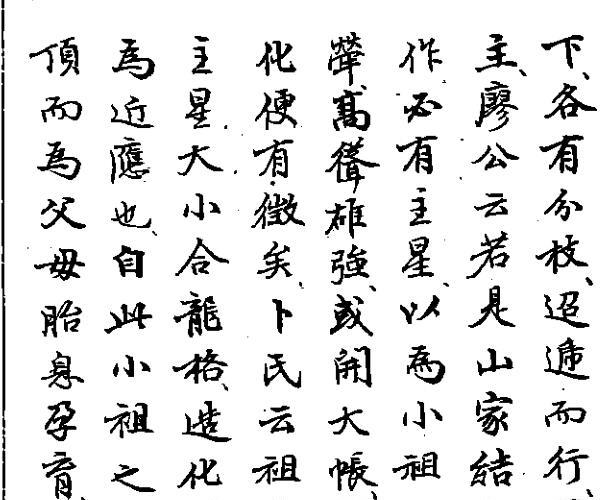 下、各有分枝、迢遞而行、
主、廖公云若是山家結
作必有主星、以為小祖
高聳雄強、或開大帳、
化便有徵矣、卜氏云祖
主星大小合龍格、造化
為近應也、自此小祖之
頂而為父母胎息孕育、